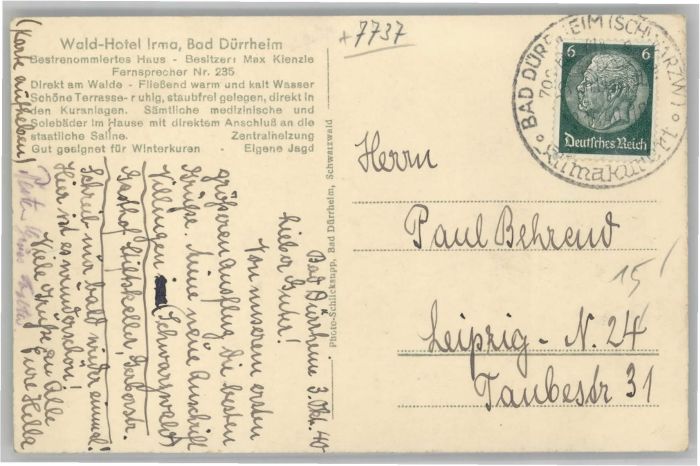 Wald-Hotel Irma, Bad Dürrheim
Bestrenommiertes Haus - Besitzer: Max Kienzle
Fernsprecher Nr. 235
Direkt am Walde - Fließend warm und kalt Wasser
Schöne Terrasse- ruhig, staubfrei gelegen, direkt in
den Kuranlagen. Sämtliche medizinische und
Solebäder im Hause mit direktem Anschluß an die
staatliche Saline. Zentralheizung
Gut geeignet für Winterkuren - Eigene Jagd
+7737
BAD DÜRRHEIM (SCHWARZW)
Klimakurort
6 6
Deutsches Reich
Photo-Schilcksupp, Bad Dürrheim, Schwarzwald
Bad Dürrheim 3. Okt. 40
Lieber
Von unserem ersten
größeren Ausflug die besten
Grüße. Meine neue Anschrift
Villingen (Schwarzwald)
Gasthof
Schreib mir bald wieder einmal!
Hier ist es wunderschön!
Viele Grüße an Alle
Eure Hella
(Karte aufheben)
Herrn
Paul Behrend
Leipzig - N. 24
Taubestr 31
15